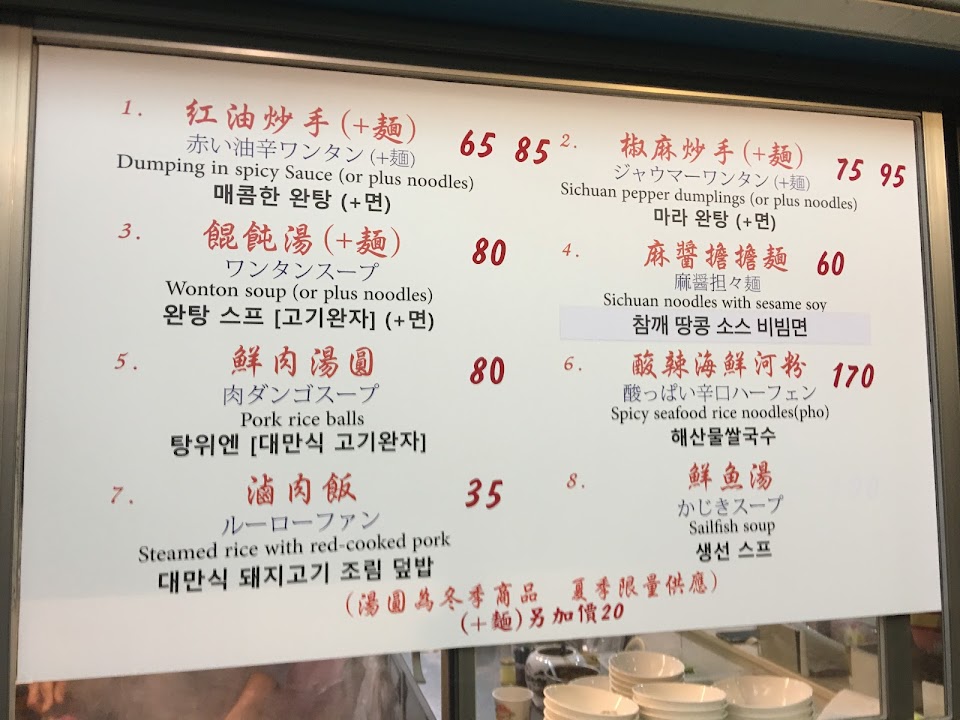 1. 红油炒手(+麵) 65 85
赤い油辛ワンタン(+麵)
Dumping in spicy Sauce (or plus noodles)
매콤한 완탕 (+면)
2. 椒麻炒手(+麵) 75 95
ジャウマーワンタン(+麵)
Sichuan pepper dumplings (or plus noodles)
마라 완탕 (+면)
3. 餛飩湯(+麵) 80
ワンタンスープ
Wonton soup (or plus noodles)
완탕 스프 [고기완자] (+면)
4. 麻醬擔擔麵 60
麻醤担々麺
Sichuan noodles with sesame soy
참깨 땅콩 소스 비빔면
5. 鮮肉湯圓 80
肉ダンゴスープ
Pork rice balls
탕위엔 [대만식 고기완자]
6. 酸辣海鮮河粉 170
酸っぱい辛口ハーフェン
Spicy seafood rice noodles(pho)
해산물쌀국수
7. 滷肉飯 35
ルーローファン
Steamed rice with red-cooked pork
대만식 돼지고기 조림 덮밥
8. 鮮魚湯
かじきスープ
Sailfish soup
생선 스프
(湯圓為冬季商品 夏季限量供應)
(+麵)另加價20